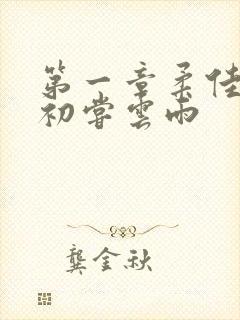 第一章柔佳
初尝雲雨
龔金秋